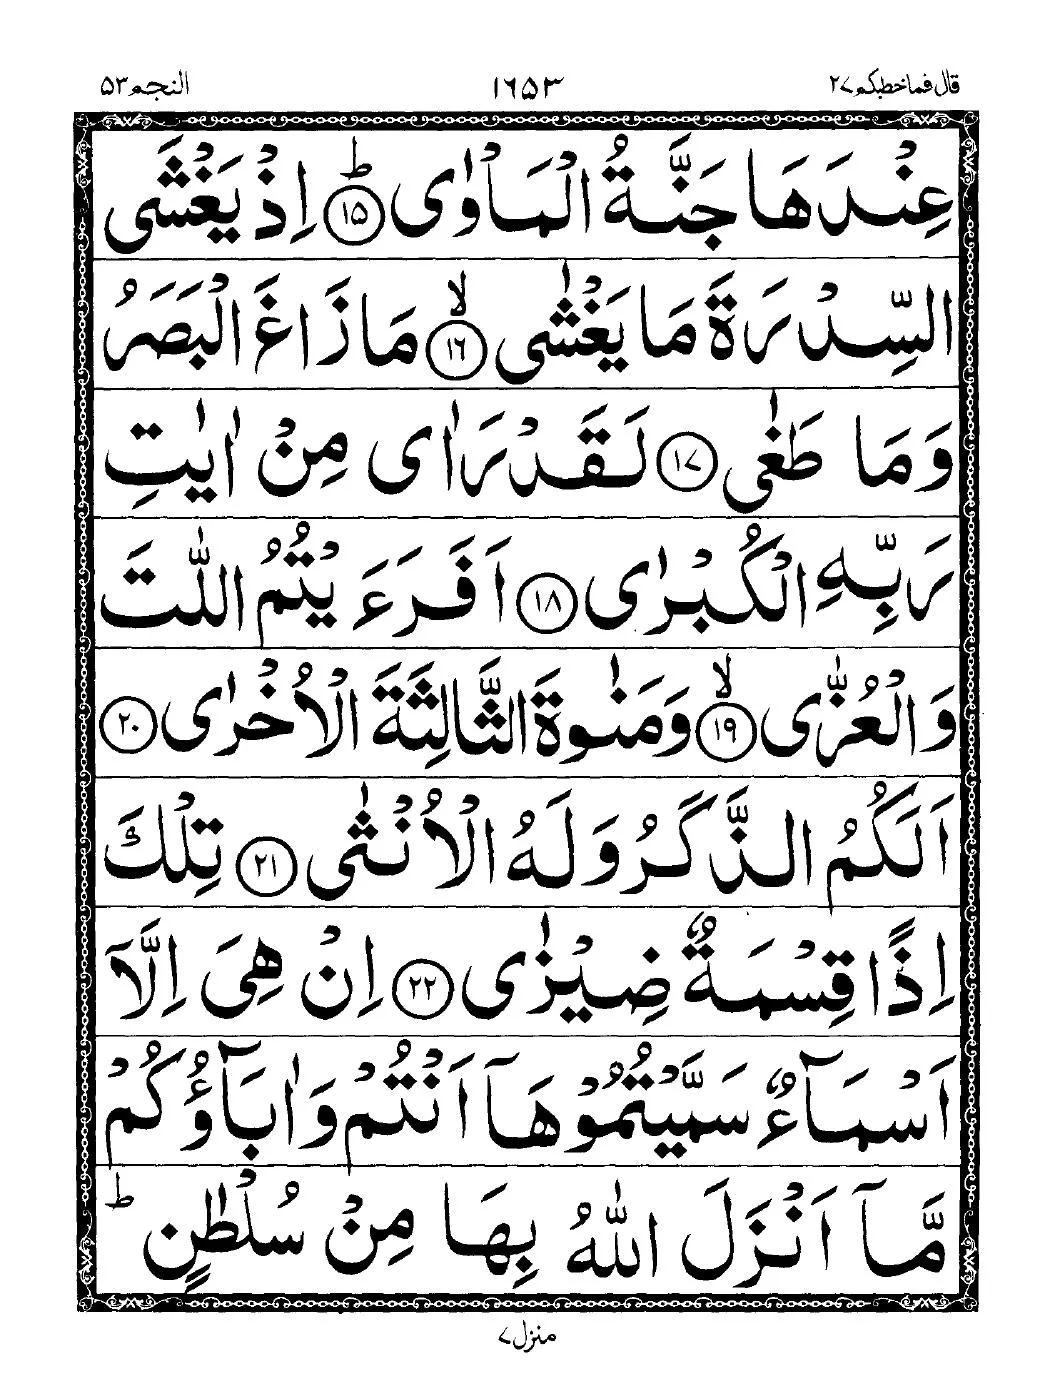 قال فما خطبكم ٢٧ ١٦٥٣ النجم ٥٣
عِنْدَهَا جَنَّةُ الْمَاْوٰى ﴿۱۵﴾ؕ اِذْ يَغْشَى
السِّدْرَةَ مَا يَغْشٰى ﴿۱۶﴾ۙ مَا زَاغَ الْبَصَرُ
وَمَا طَغٰى ﴿۱۷﴾ لَقَدْ رَاٰى مِنْ اٰيٰتِ
رَبِّهِ الْكُبْرٰى ﴿۱۸﴾ اَفَرَءَيْتُمُ اللّٰتَ
وَالْعُزّٰى ﴿۱۹﴾ۙ وَمَنٰوةَ الثَّالِثَةَ الْاُخْرٰى ﴿۲۰﴾
اَلَكُمُ الذَّكَرُ وَلَهُ الْاُنْثٰى ﴿۲۱﴾ تِلْكَ
اِذًا قِسْمَةٌ ضِيْزٰى ﴿۲۲﴾ اِنْ هِىَ اِلَّاۤ
اَسْمَآءٌ سَمَّيْتُمُوْهَاۤ اَنْتُمْ وَاٰبَآؤُكُمْ
مَّاۤ اَنْزَلَ اللّٰهُ بِهَا مِنْ سُلْطٰنٍؕ
منزل ٧